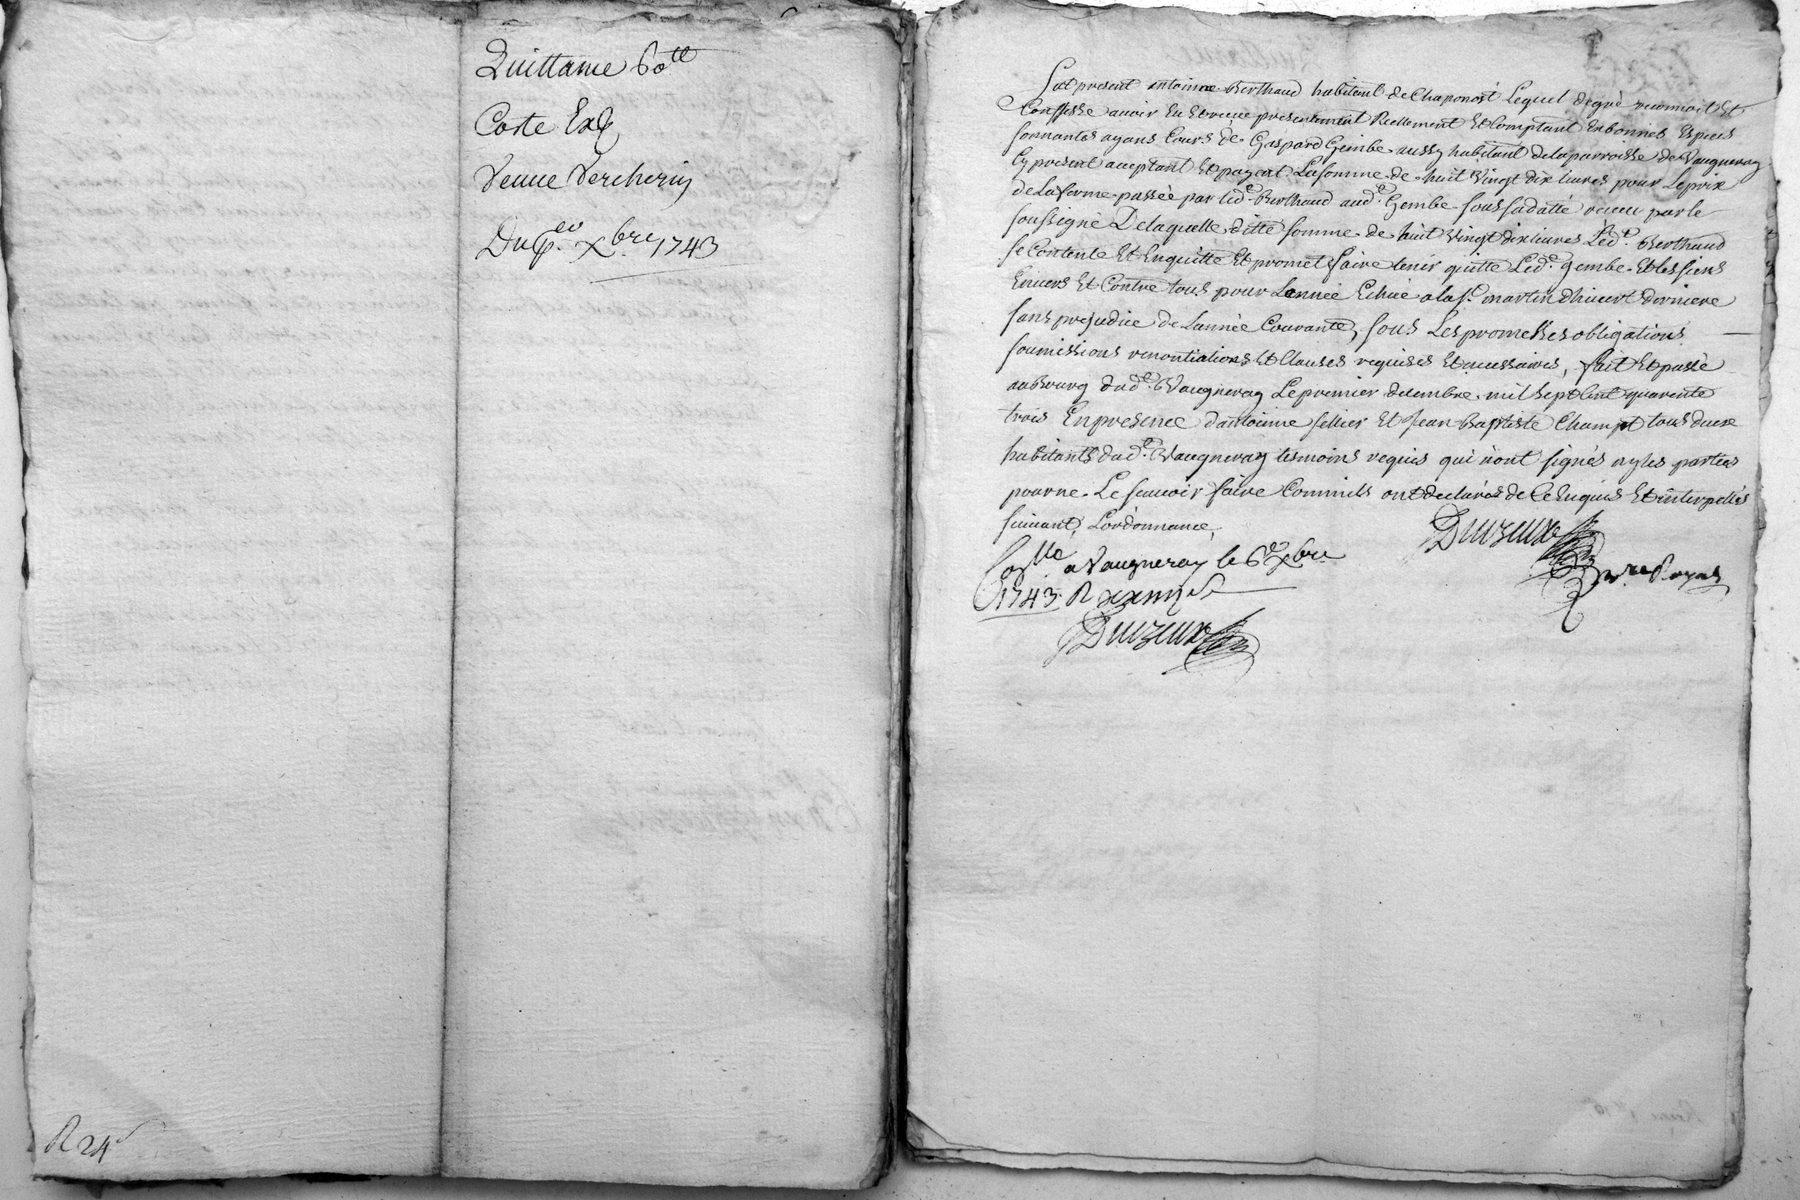 Quittance 60 tt
Coste Exp
Veuve Vercherin
Du p.er Xbre 1743
R 24 s
Fut present antoinne Berthaud habitant de Chaponost Lequel de gré reconnoit Et
Confesse avoir Eu Et receu presentement Reellement Et Comptant En bonnes Especes
sonnantes ayans Cours de Gaspard Gembe aussy habitant de la parroisse de Vaugneray
Cy present acceptant Et payant La somme de huit vingt dix livres pour Le prix
de La ferme passée par led.t Berthaud aud.t Gembe sous sa datte receu par le
soussigné De laquelle ditte somme de huit vingt dix livres Led.t Berthaud
se Contente Et Enquitte Et promet faire tenir quitte Led.t gembe Et les siens
Envers Et Contre tous pour L'année Echüe a la s.t martin d'hivert derniere
sans prejudice de L'année Courante, sous Les promesses obligations
soumissions renontiations Et Clauses requises Et necessaires, fait Et passé
au Bourg dud.t Vaugneray Le premier decembre mil sept Cent quarente
trois En presence d'antoinne sellier Et Jean Baptiste Champt tous deux
habitants dud.t Vaugneray tesmoins requis qui n'ont signés ny les parties
pour ne Le scavoir faire Comm'ils ont declarés de Ce Enquis Et interpellés
suivant L'ordonnance,
Duvzeux
n.re Royal
Con.lle a Vaugneray le 6.e Xbre
1743. R
Duvzeux